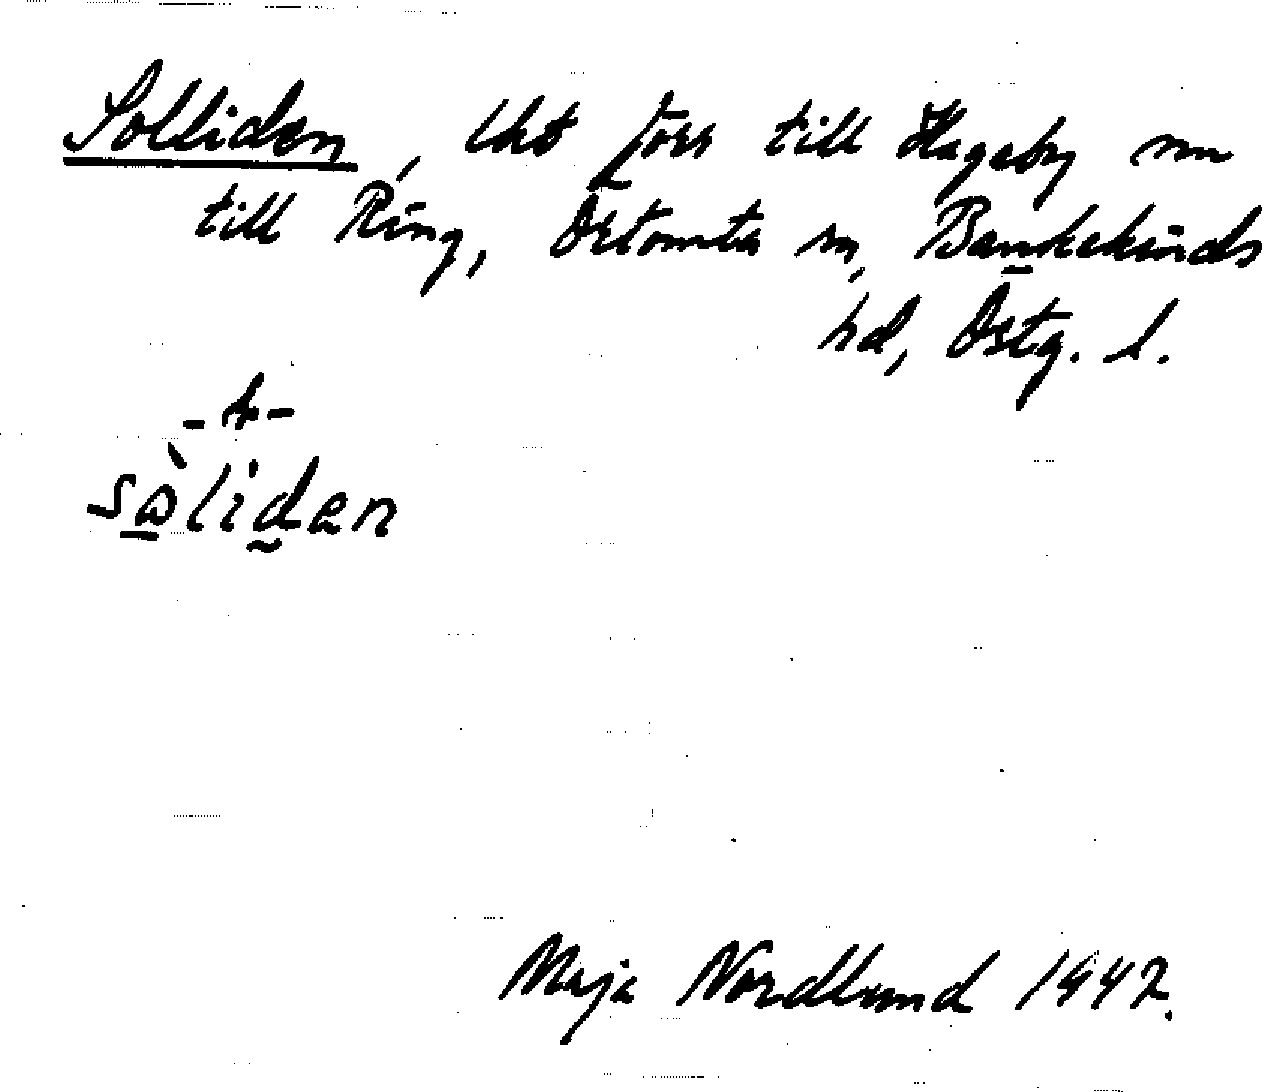 Solliden, lht förr till Hageby nu
till Ring, Östomta sn, Bankekinds
hd, Östg. l.
-t-
sὼliden
Maja Nordlund 1947.